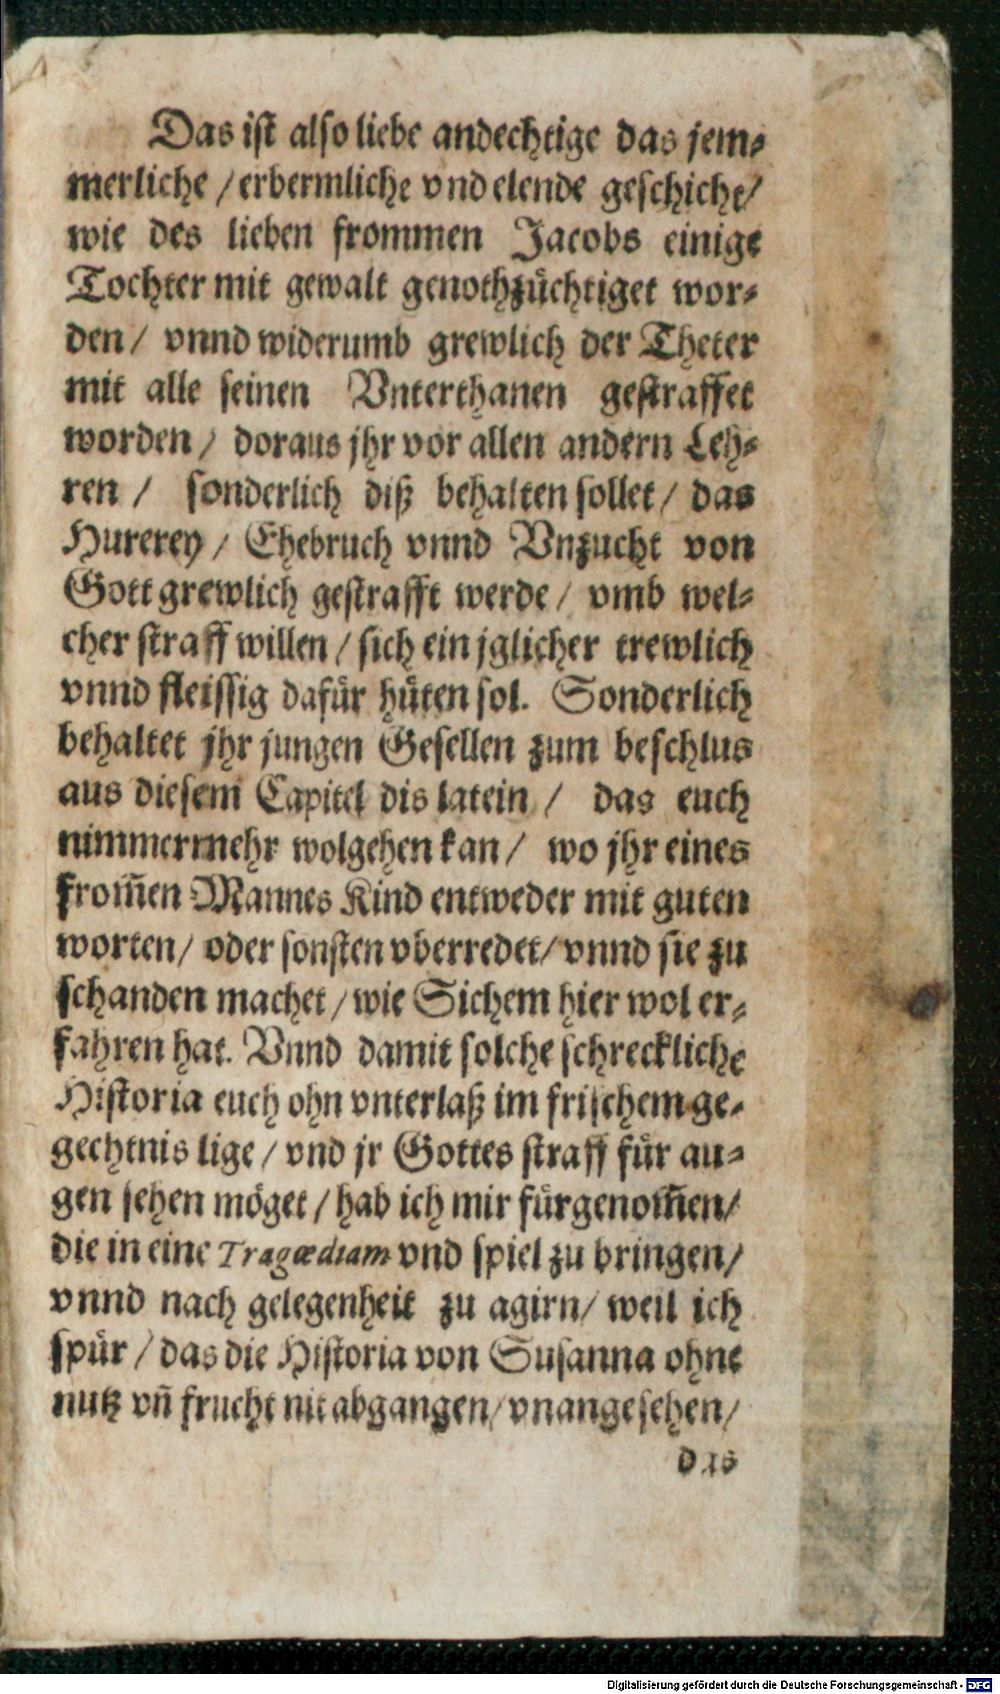 Das ist also liebe andechtige das jem⸗
merliche / erbermliche vnd elende geschicht/
wie des lieben frommen Jacobs einige
Tochter mit gewalt genothzüchtiget wor⸗
den / vnnd widerumb grewlich der Theter
mit alle seinen Vnterthanen gestraffet
worden / doraus jhr vor allen andern Leh⸗
ren / sonderlich diß behalten sollet / das
Hurerey / Ehebruch vnnd Vnzucht von
Gott grewlich gestrafft werde / vmb wel⸗
cher straff willen / sich ein jglicher trewlich
vnnd fleissig dafür hüten sol. Sonderlich
behaltet jhr jungen Gesellen zum beschlus
aus diesem Capitel dis latein / das euch
nimmermehr wolgehen kan / wo jhr eines
from̃en Mannes Kind entweder mit guten
worten / oder sonsten vberredet / vnnd sie zu
schanden machet / wie Sichem hier wol er⸗
fahren hat. Vnnd damit solche schreckliche
Historia euch ohn vnterlaß im frischem ge⸗
gechtnis lige / vnd jr Gottes straff für au⸗
gen sehen möget / hab ich mir fürgenom̃en /
die in eine Tragœdiam vnd spiel zu bringen /
vnnd nach gelegenheit zu agirn / weil ich
spür / das die Historia von Susanna ohne
nutz vñ frucht nit abgangen / vnangesehen /
das
Digitalisierung gefördert durch die Deutsche Forschungsgemeinschaft - DFG